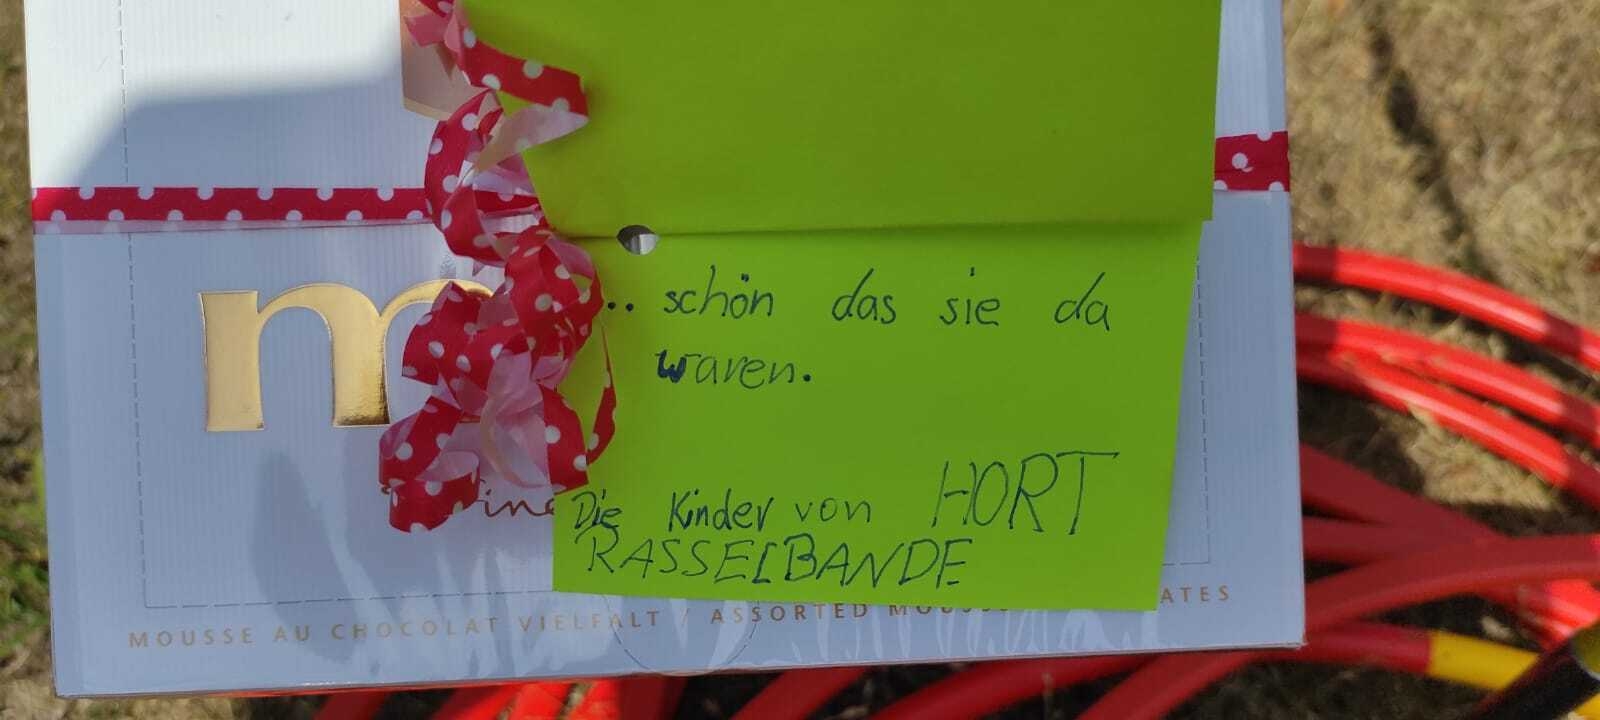 m
.. schön das sie da
waren.
Die Kinder von HORT
RASSELBANDE
MOUSSE AU CHOCOLAT VIELFALT / ASSORTED